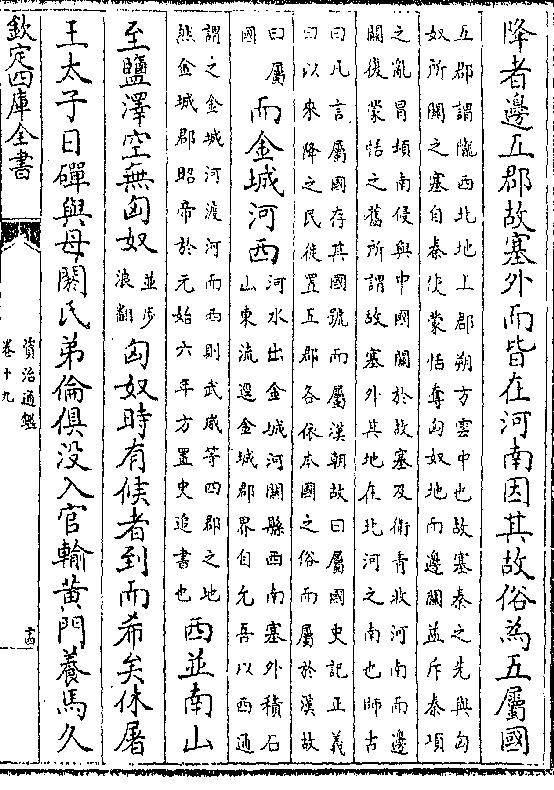 降者邊五郡故塞外而皆在河南因其故俗為五屬國
五郡謂隴西北地上郡朔方雲中也故塞秦之先與匈
奴所關之塞自秦使蒙恬奪匈奴地而邊關益斥秦項
之亂冒頓南侵與中國關於故塞及衛青收河南而邊
關復蒙恬之舊所謂故塞外其地在北河之南也師古
曰凡言屬國存其國號而屬漢朝故曰屬國史記正義
曰以來降之民徙置五郡各依本國之俗而屬於漢故
曰屬
國
而金城河西
河水出金城河關縣西南塞外積石
山東流逕金城郡界自允吾以西通
謂之金城河渡河而西則武威等四郡之地
然金城郡昭帝於元始六年方置史追書也
西並南山
至鹽澤空無匈奴
並步
浪翻
匈奴時有候者到而希矣休屠
王太子日磾與母閼氏弟倫俱没入官輸黄門養馬久
欽定四庫全書
資治通鑑
卷十九
十四